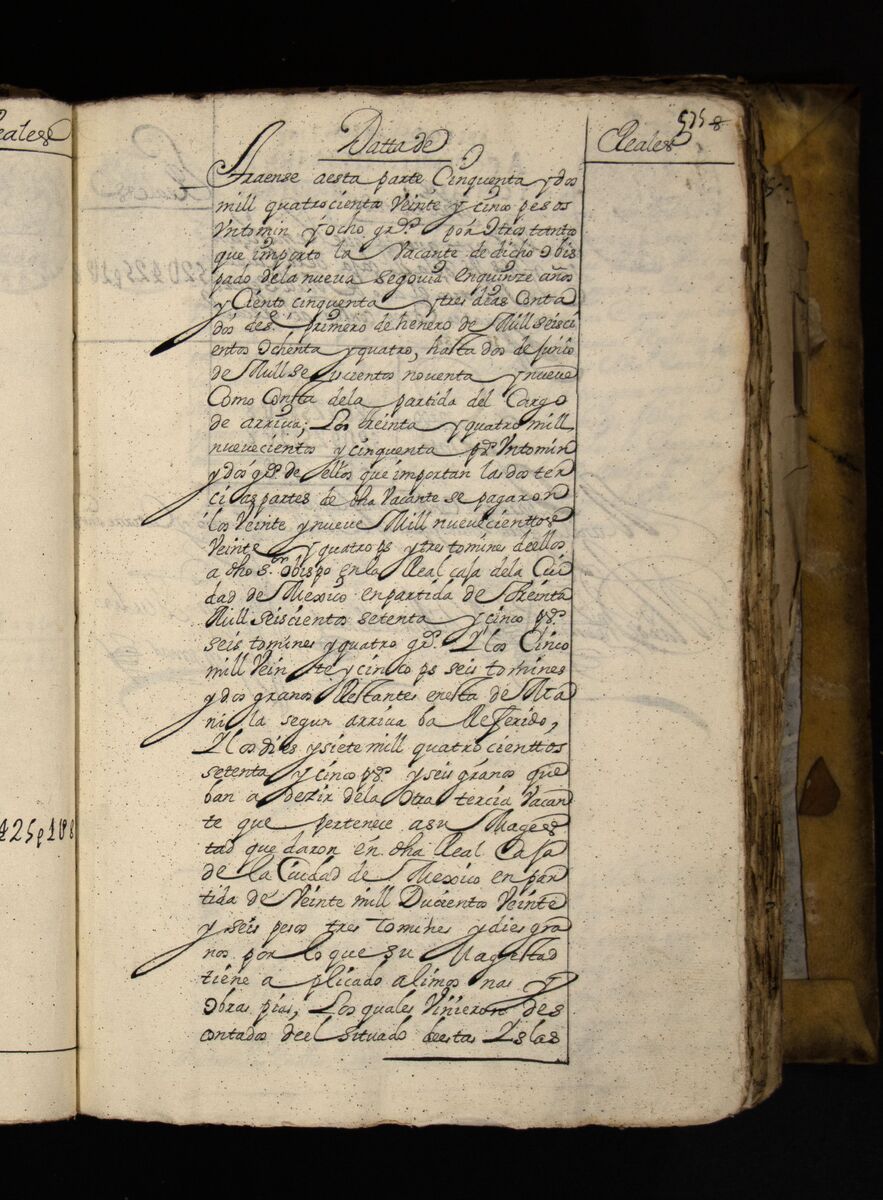 eales
425 p 1 t 8
575
Datta de
Reales
Traense aesta parte Cinquenta ydos
mill quatrocientos Veinte y cinco pesos
Untomin yocho grs. por otros tantos
que importo la Vacante de dicho obis
pado dela nueva segovia enquinze años
y Ciento cinquenta ytres dias Conta
dos desde primero de henero de Mill seisci
entos ochenta yquatro, hasta dos de Junio
de Mill seiscientos noventa ynueve
Como Consta dela partida del Cargo
de arriva; Los treinta yquatro mill
nuevecientos y cinquenta ps. Untomin
ydos gs. de ellos que importan las dos ter
cias partes de dha Vacante se pagaron
los Veinte ynueve Mill nuevecienttos
Veinte yquatro ps ytres tomines deellos
a dho sr. obispo enla Real caja dela Ciu
dad de Mexico enpartida de treinta
Mill seiscientos setenta y cinco ps.
seis tomines yquatro gs. Y los Cinco
mill Veinte ycinco ps seis tomines
ydos granos Restantes enesta de Ma
nila segun arriva ba Referido,
Y los dies ysiete mill quatrocienttos
setenta y cinco ps. yseis granos que
ban a Dezir dela otra tercia Vacan
te que pertenece asu Mages
tad quedaron en dha Real Caja
de la Ciudad de Mexico en par
tida de Veinte mill Ducientos Veinte
y seis pesos tres tomines ydies gra
nos por lo que su Magestad
tiene aplicado alimosnas y
Obras pias, Los quales Vinieron des
contados deel situado deestas Yslas